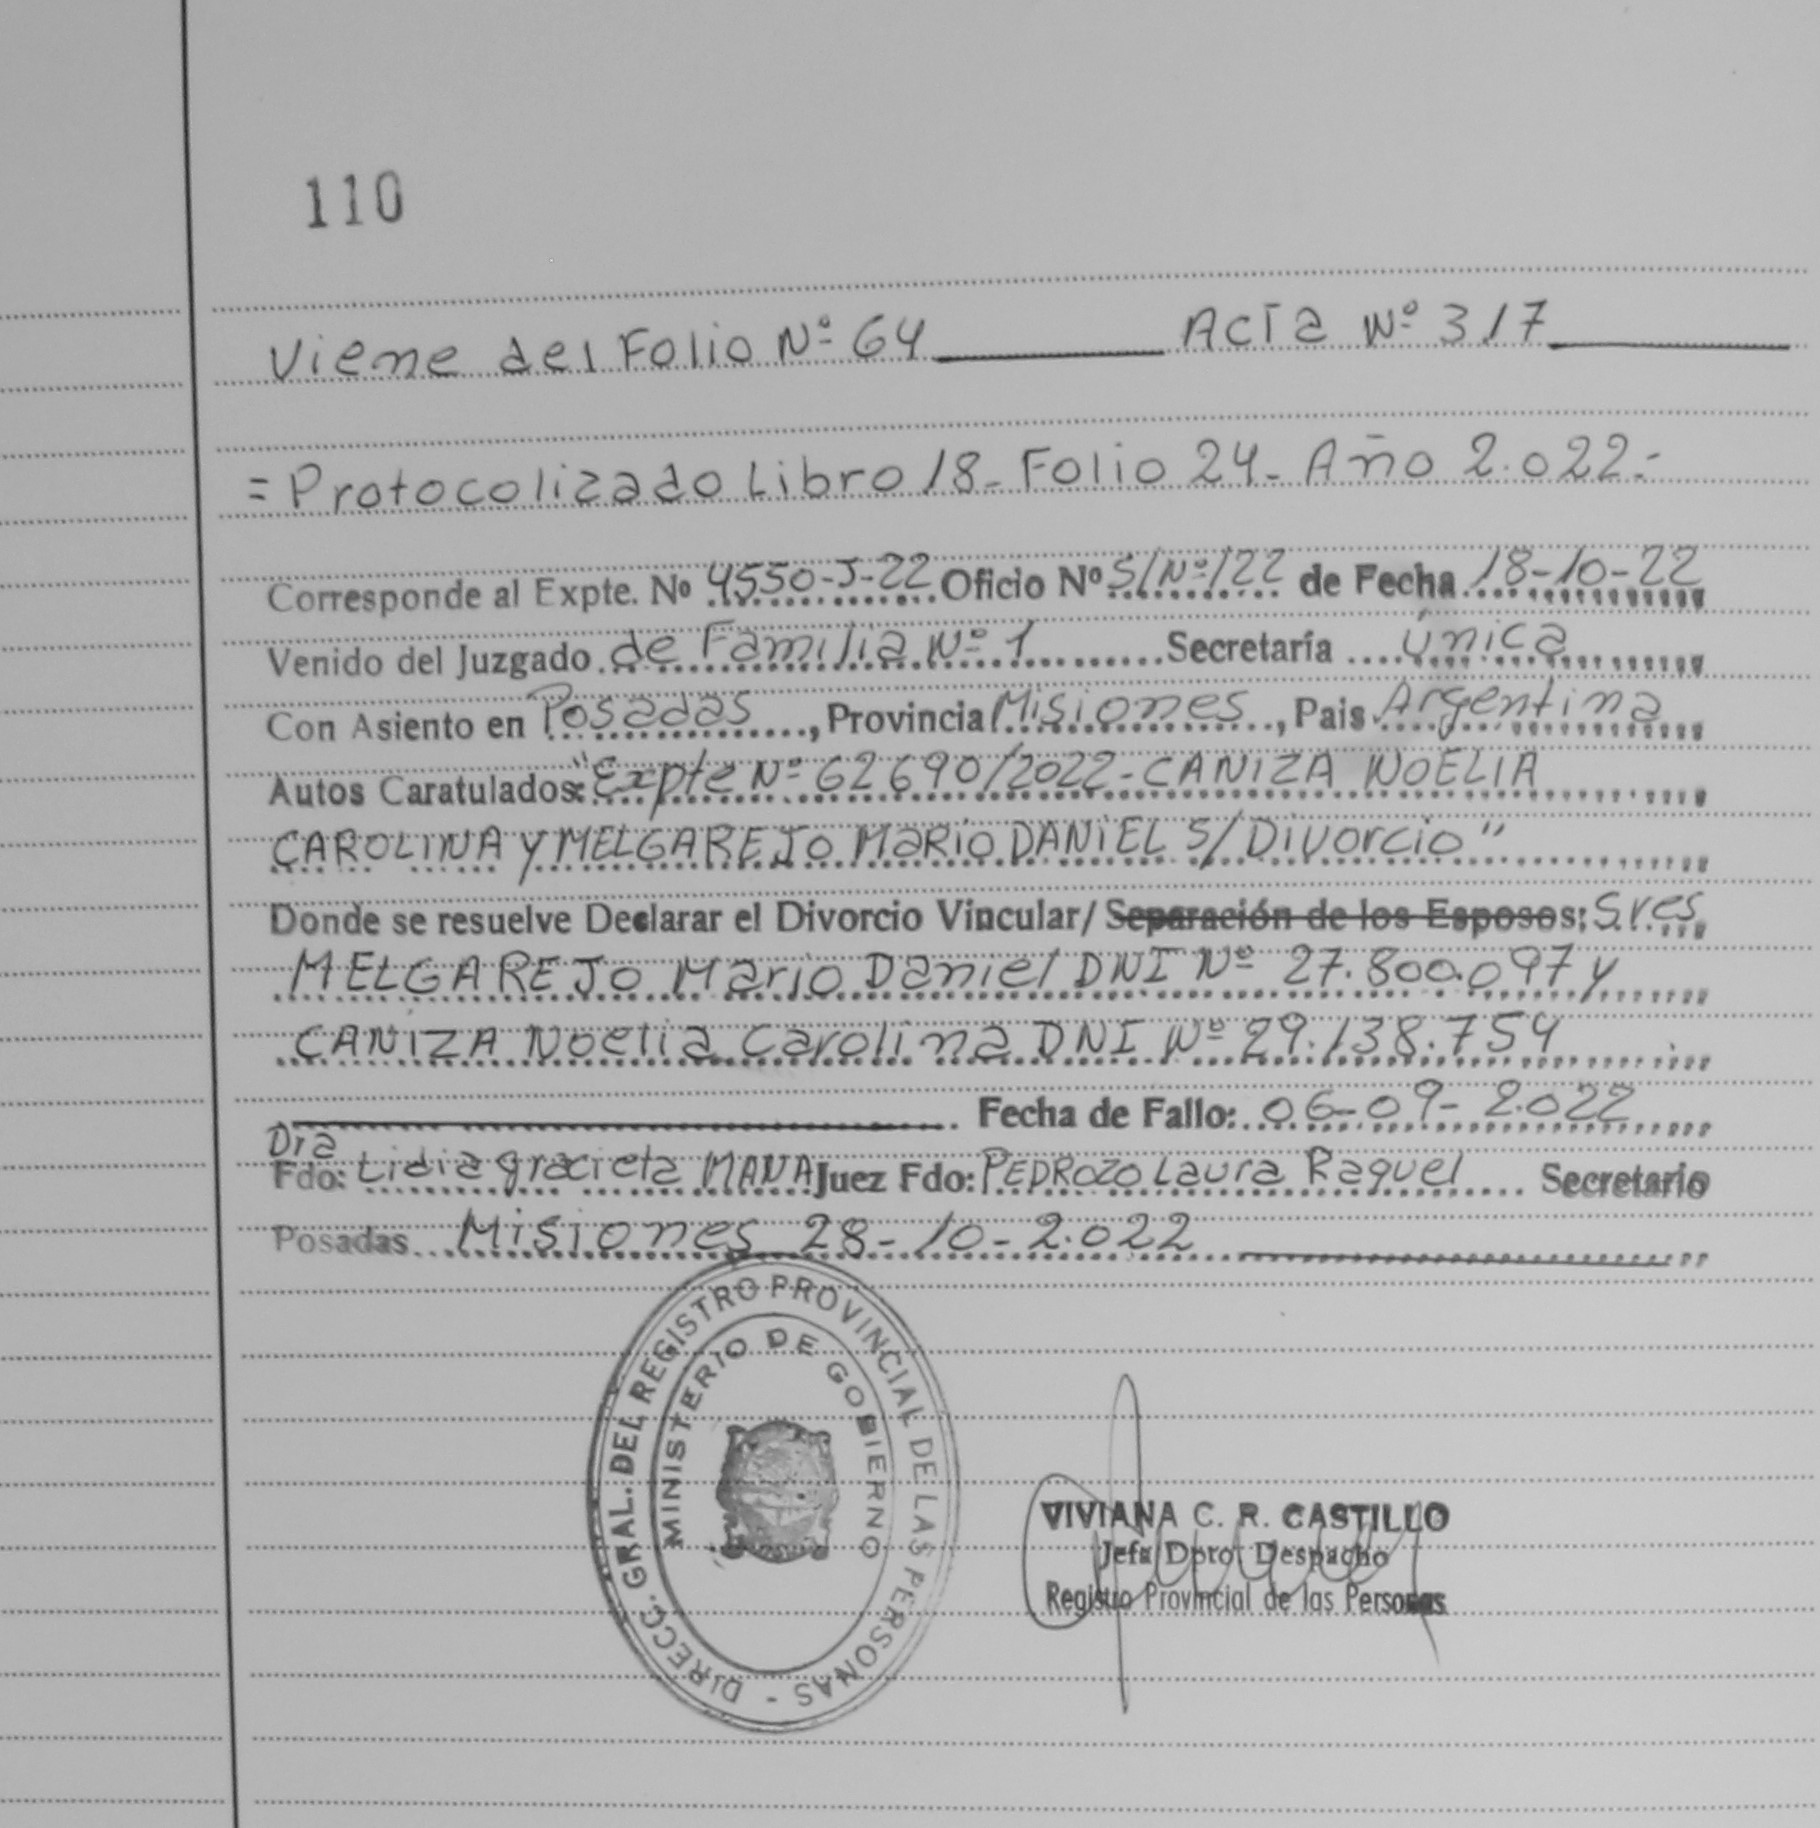 110
Viene del Folio Nº 64 ACTa Nº 317
= Protocolizado Libro 18- Folio 24- Año 2.022.-
Corresponde al Expte. Nº 4550-J-22 Oficio Nº S/Nº/22 de Fecha 18-10-22
Venido del Juzgado de Familia Nº 1 Secretaría única
Con Asiento en Posadas, Provincia Misiones, Pais Argentina
Autos Caratulados: "Expte Nº 62690/2022-CANIZA NOELIA
CAROLINA Y MELGAREJO MaRio DANiEL S/Divorcio"
Donde se resuelve Declarar el Divorcio Vincular/ Separación de los Esposos: Sres
MELGAREJO Mario Daniel DNI Nº 27.800.097 y
CANIZA Noelia Carolina DNI Nº 29.138.754
Fecha de Fallo: 06-09-2.022
Dra
Fdo: Lidia Juez Fdo: PEDROZO Laura Raquel Secretario
Posadas Misiones 28-10-2.022
DIRECC. GRAL. DEL REGISTRO PROVINCIAL DE LAS PERSONAS -
MINISTERIO DE GOBIERNO
VIVIANA C. R. CASTILLO
Jefa Dpto. Despacho
Registro Provincial de las Personas